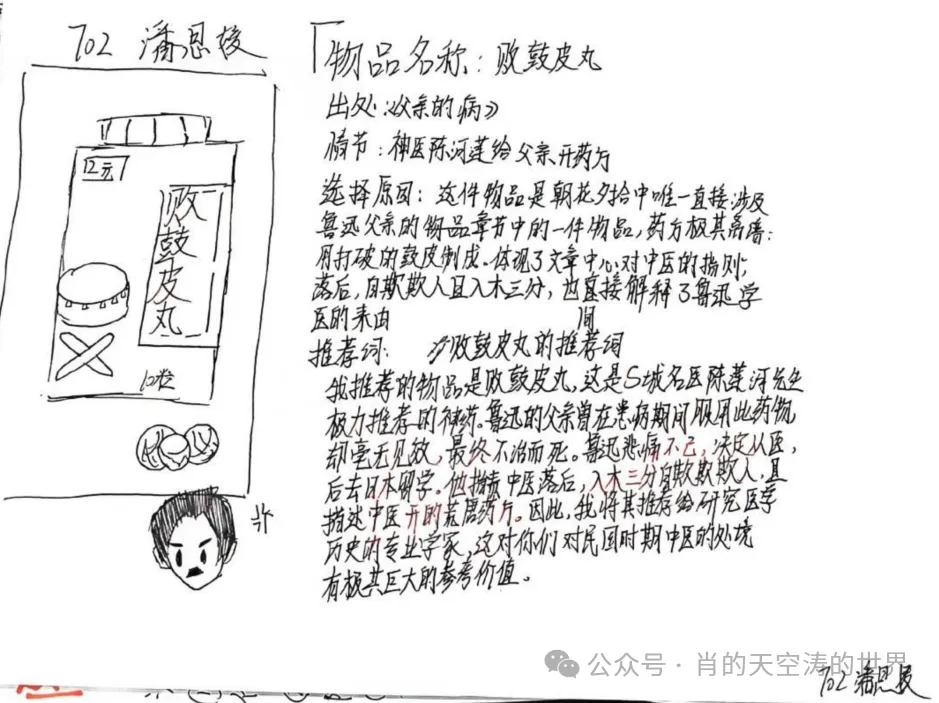 702 潘恩
物品名称：败鼓皮丸
出处：《父亲的病》
情节：神医陈河莲给父亲开药方
选择原因：这件物品是朝花夕拾中唯一直接涉及
鲁迅父亲的物品章节中的一件物品，药方极其离谱：
用打破的鼓皮制成。体现了文章中心：对中医的指则；
落后，自欺欺人且入木三分，也直接解释了鲁迅学
医的来由
间
推荐词：
败鼓皮丸的推荐词
我推荐的物品是败鼓皮丸，这是S城名医陈莲河先生
极力推荐的神药。鲁迅的父亲曾在患病期间服用此药物，
却毫无见效，最终不治而死。鲁迅悲痛不已，决定从医，
后去日本留学。他指责中医落后，入木三分自欺欺欺人，且
描述中医开的荒唐药方。因此，我将其推荐给研究医学
历史的专业学家，这对你们对民国时期中医的处境
有极其巨大的参考价值。
12元
败鼓皮丸
12粒
公众号 · 肖的天空涛的世界
702 潘恩